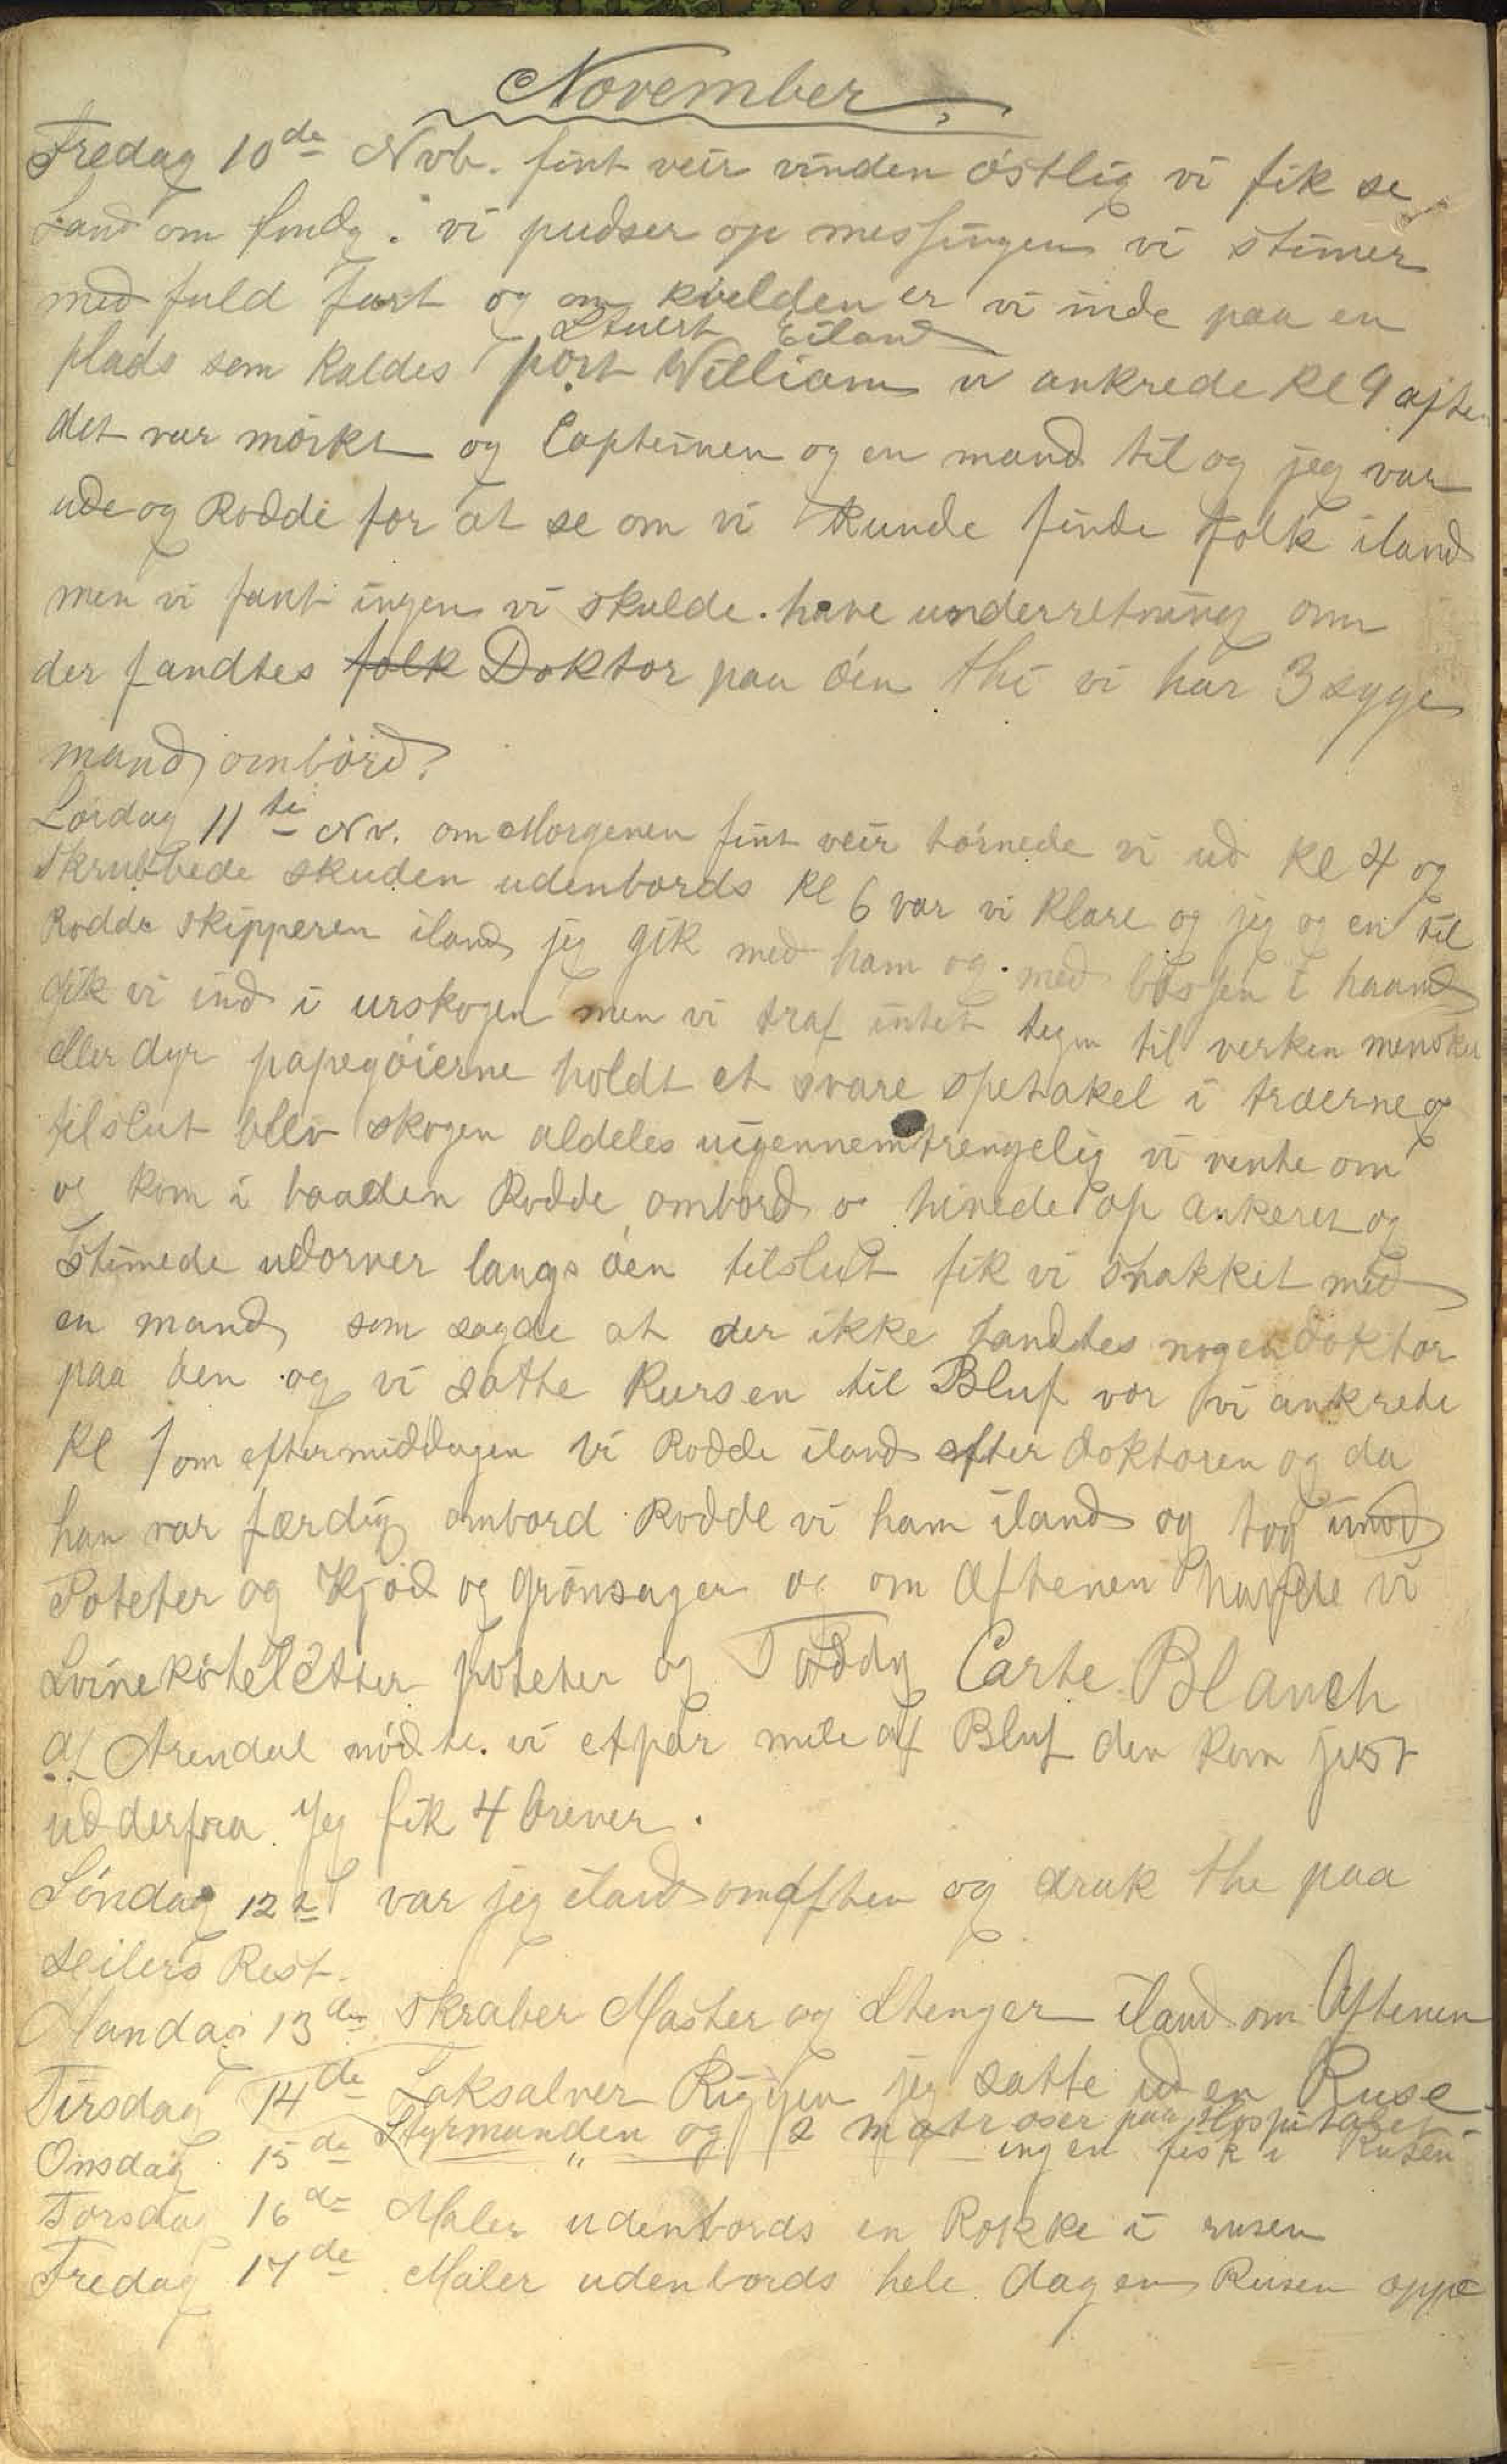 November
Fredag 10de Nvb. fint veir vinden östlig vi fik se
Land om fmdg. vi pudser op messingen vi stimer
med fuld fart og om kvelden er vi inde paa en
Stuert Eiland
plads som kaldes port William vi ankrede Kl 9 aften
det var mörkt og Capteinen og en mand til og jeg var
ude og Rodde for at se om vi kunde finde folk iland
men vi fant ingen vi skulde have underretning om
der fandtes folk Doktor paa öen thi vi har 3 syge
mand ombörd.
Lördag 11te Nv. om Morgenen fint veir törnede vi ud Kl 4 og
Skrubbede skuden udenbords Kl 6 var vi klare og jeg og en til
Rodde skipperen iland jeg gik med ham og med bössen i haand
gik vi ind i urskogen men vi traf intet tegn til verken mensker
eller dyr papegöierne holdt et svare spetakel i træerne og
tilslut blev skogen aldeles uigennemtrengelig vi vente om
og kom i baaden Rodde ombord o hivede op ankeret og
Stimede udorver langs öen tilslut fik vi snakket med
en mand som sagde at der ikke fandtes nogen doktor
paa öen og vi satte Kursen til Bluf vor vi ankrede
Kl 1 om eftermiddagen vi Rodde iland efter doktoren og da
han var færdig ombord Rodde vi ham iland og tog imod
Poteter og Kjöd og Grönsager og om Aftenen havde vi
Svinekoteletter poteter og Toddy Carte Blanch
af Arendal mödte vi etpar mile af Bluf den kom just
ud derfra Jeg fik 4 brever.
Söndag 12te var jeg iland om Aften og druk the paa
Seilers Rest.
Mandag 13de Skraber Master og Stenger iland om Aftenen
Tirsdag 14de Laksalver Riggen jeg satte ud en Ruse
Styrmanden og 2 matroser paa Hospitalet
Onsdag 15de " ingen fisk i Rusen
Torsdag 16de Maler udenbords en Rokke i rusen
Fredag 17de Maler udenbords hele dagen Rusen oppe